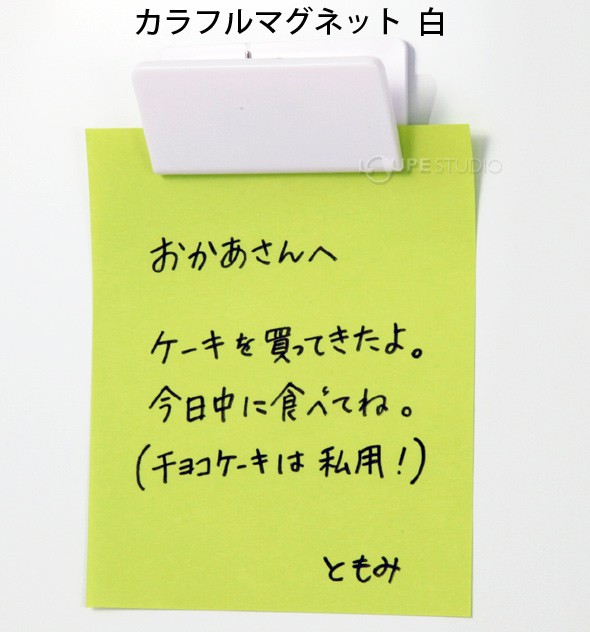 カラフルマグネット 白
LOUPE STUDIO
おかあさんへ
ケーキを買ってきたよ。
今日中に食べてね。
(チョコケーキは私用!)
ともみ